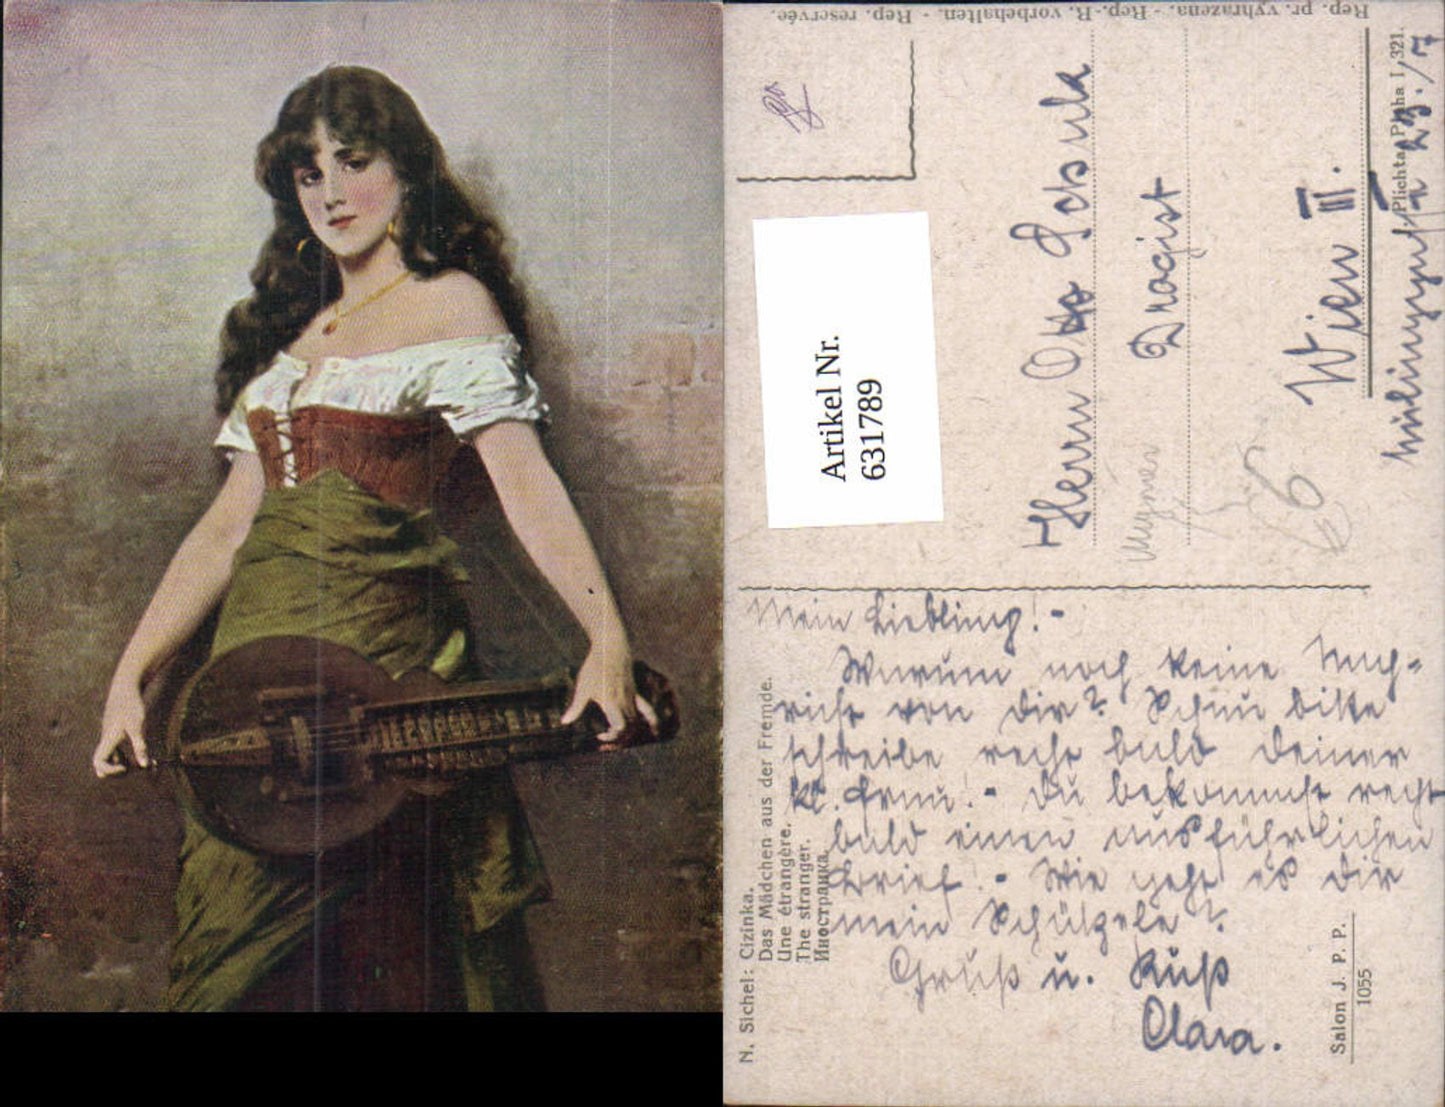 Rep. pr. vyhrazena. - Rep.-R. vorbehalten. - Rep. reservée.
Plichta, Praha I, 321.
Artikel Nr.
631789
Herrn Otto
Drogist
Wien III.
23./7
N. Sichel: Cizinka.
Das Mädchen aus der Fremde.
Une étrangère.
The stranger.
Иностранка.
Salon J. P. P.
1055
Mein Liebling! -
Warum noch keine Nach-
richt von dir? Schau bitte
schreibe recht bald deiner
kl. Frau! - Du bekommst recht
bald einen ausführlichen
Brief! - Wie geht es dir
mein
Gruß u. Kuß
Clara.